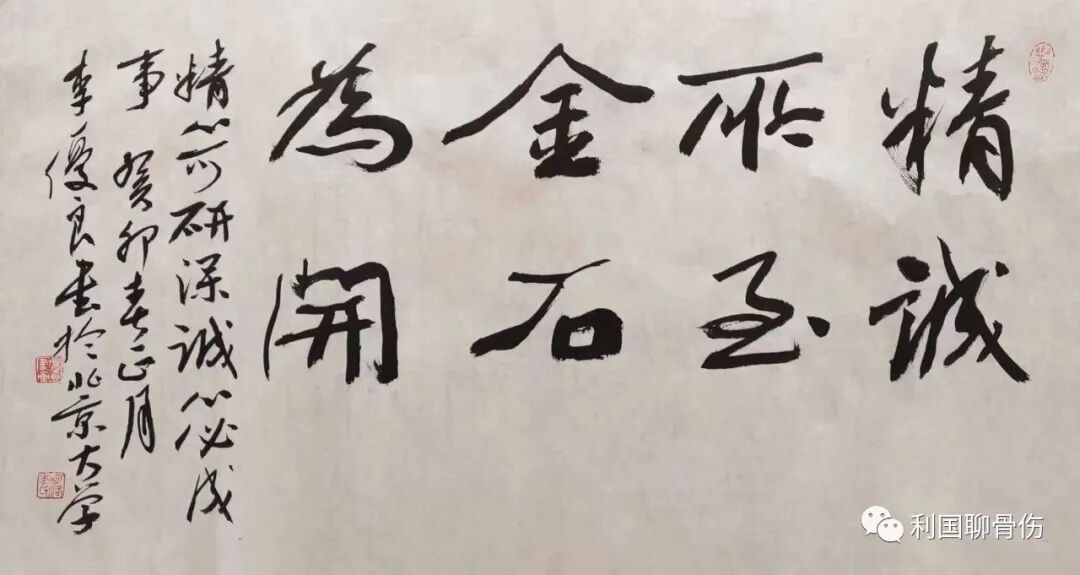 精誠
所至
金石
為開
精心可研深誠心必成
事 癸卯春正月
李優良書於北京大学
利国聊骨伤